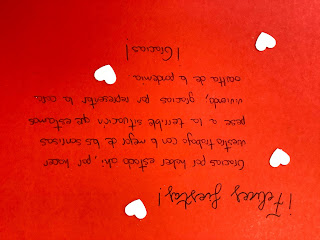 ¡Felices fiestas!
Gracias por haber estado ahí, por hacer
vuestro trabajo con la mejor de las sonrisas
pese a la terrible situación que estamos
viviendo, gracias por representar la cara
oculta de la pandemia
¡Gracias!